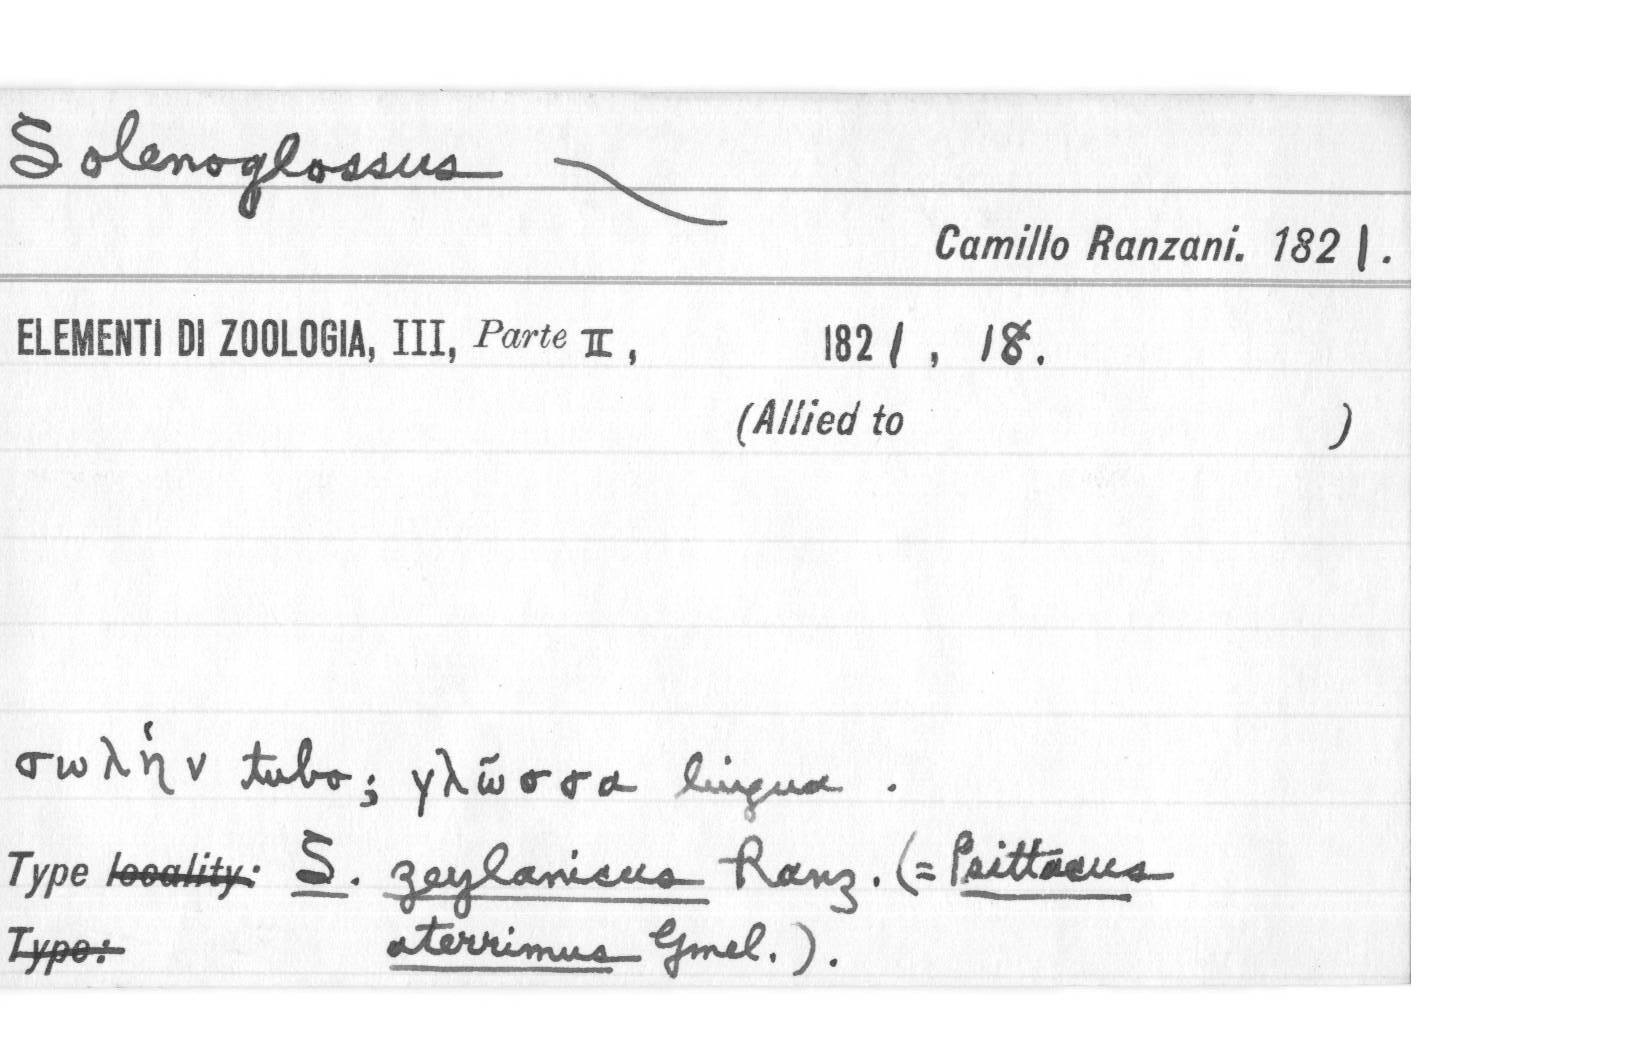 Solenoglossus
Camillo Ranzani. 1821.
ELEMENTI DI ZOOLOGIA, III, Parte II, 1821, 18.
(Allied to )
σωλήν tubo; γλῶσσα lingua.
Type locality: S. zeylanicus Ranz. (= Psittacus
Type: aterrimus Gmel.).